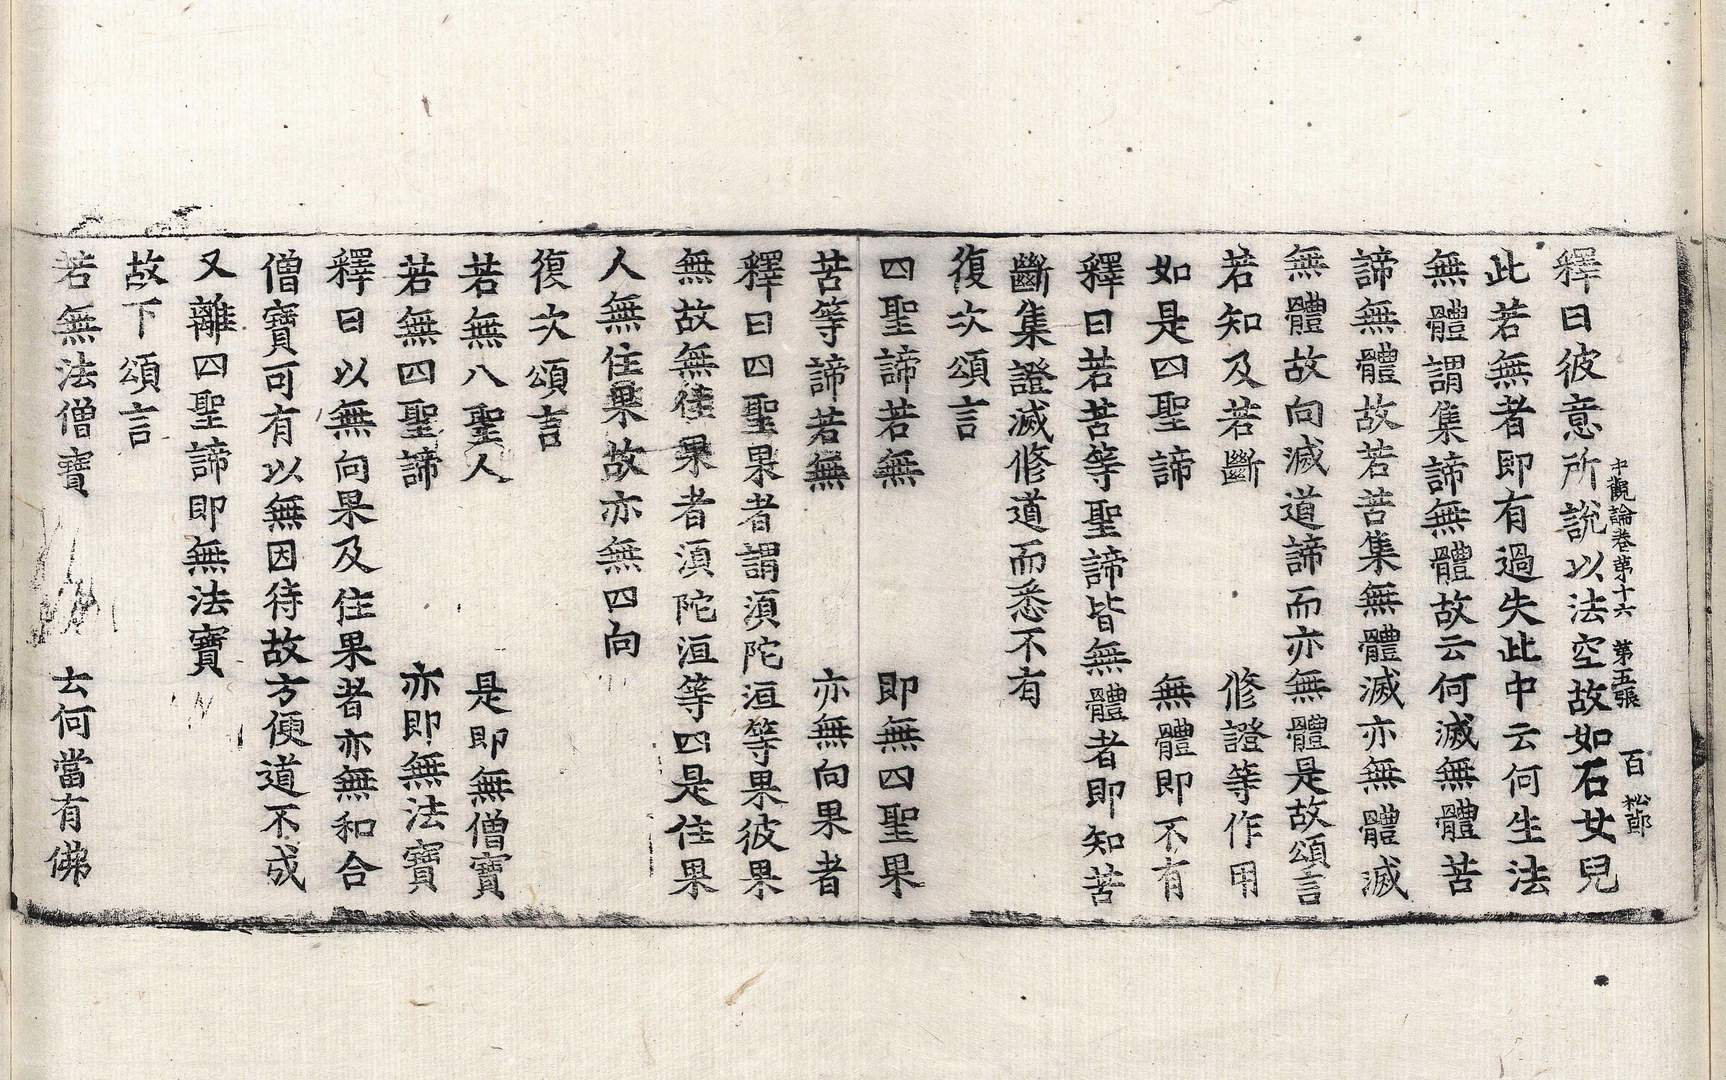 中觀論卷第十六 第五張 百 松郎
釋曰彼意所說以法空故如石女兒
此若無者即有過失此中云何生法
無體謂集諦無體故云何滅無體苦
諦無體故若苦集無體滅亦無體滅
無體故向滅道諦而亦無體是故頌言
若知及若斷 修證等作用
如是四聖諦 無體即不有
釋曰若苦等聖諦皆無體者即知苦
斷集證滅修道而悉不有
復次頌言
四聖諦若無 即無四聖果
苦等諦若無 亦無向果者
釋曰四聖果者謂須陀洹等果彼果
無故無住果者須陀洹等四是住果
人無住果故亦無四向
復次頌言
若無八聖人 是即無僧寶
若無四聖諦 亦即無法寶
釋曰以無向果及住果者亦無和合
僧寶可有以無因待故方便道不成
又離四聖諦即無法寶
故下頌言
若無法僧寶 云何當有佛